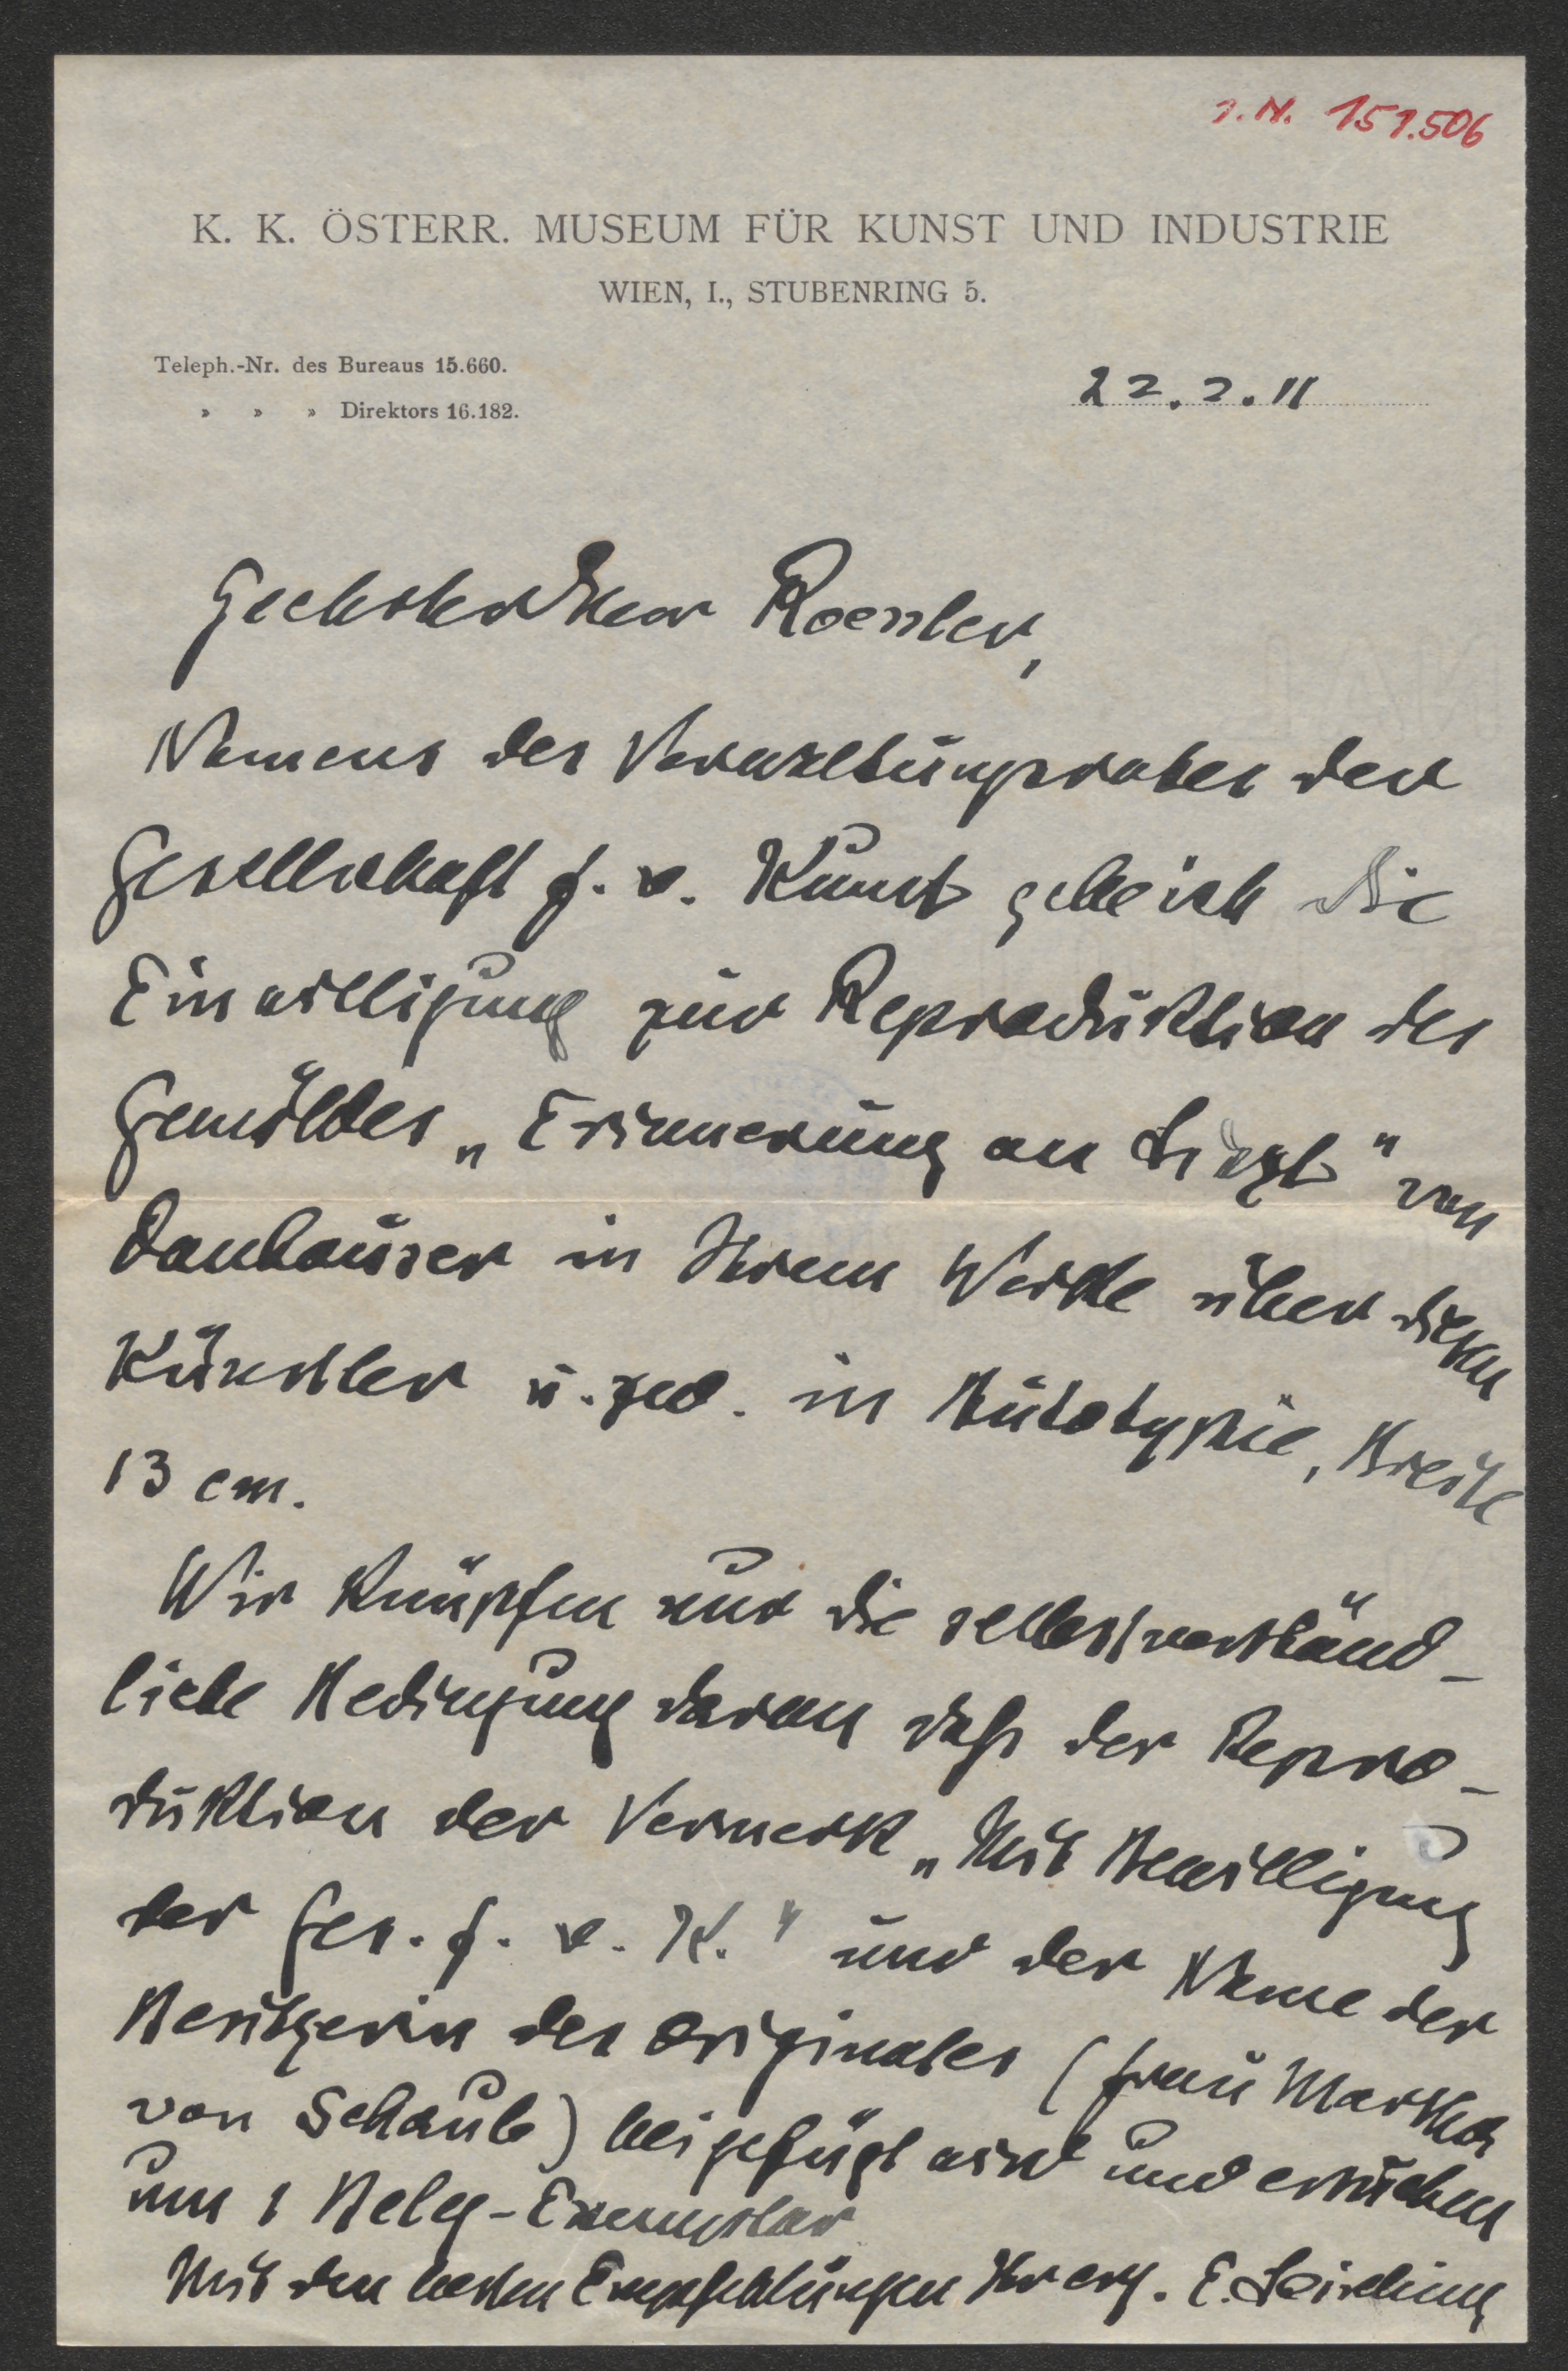 I. N. 151.506
K. K. ÖSTERR. MUSEUM FÜR KUNST UND INDUSTRIE
WIEN, I., STUBENRING 5.
Teleph.-Nr. des Bureaus 15.660.
» » » Direktors 16.182.
22.2.11
Geehrter Herr Roessler,
Namens des Verwaltungsrates der
Gesellschaft f. v. Kunst gebe ich die
Einwilligung zur Reproduktion des
Gemäldes „Erinnerung an Liszt" von
Danhauser in Ihrem Werke über diesen
Künstler u. zw. in Autotypie, Breite
13 cm.
Wir knüpfen nur die selbstverständ-
liche Bedingung daran daß der Repro-
duktion der Vermerk „Mit Bewilligung
der Ges. f. v. K." und der Name der
Besitzerin des Originales (Frau Martha
von Schaub) beigefügt wird und ersuchen
um 1 Beleg-Exemplar
Mit den besten Empfehlungen Ihr erg. E. Leisching